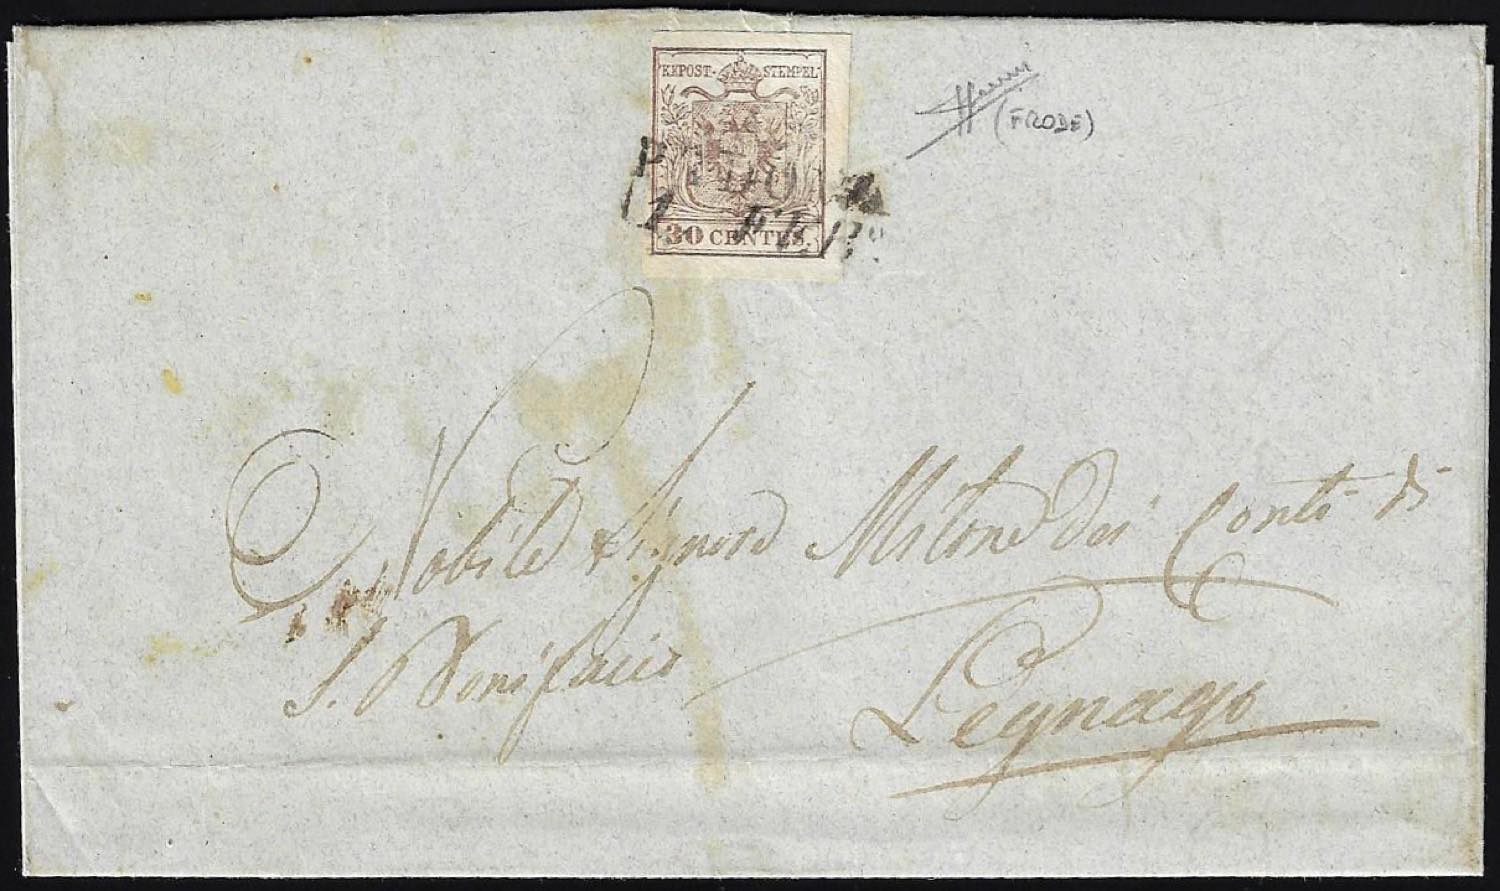 KKPOST-STEMPEL
30 CENTES.
11. FEB.
(FRODE)
Nobile Signore Milone dei Conti di
S. Bonifacio
Legnago